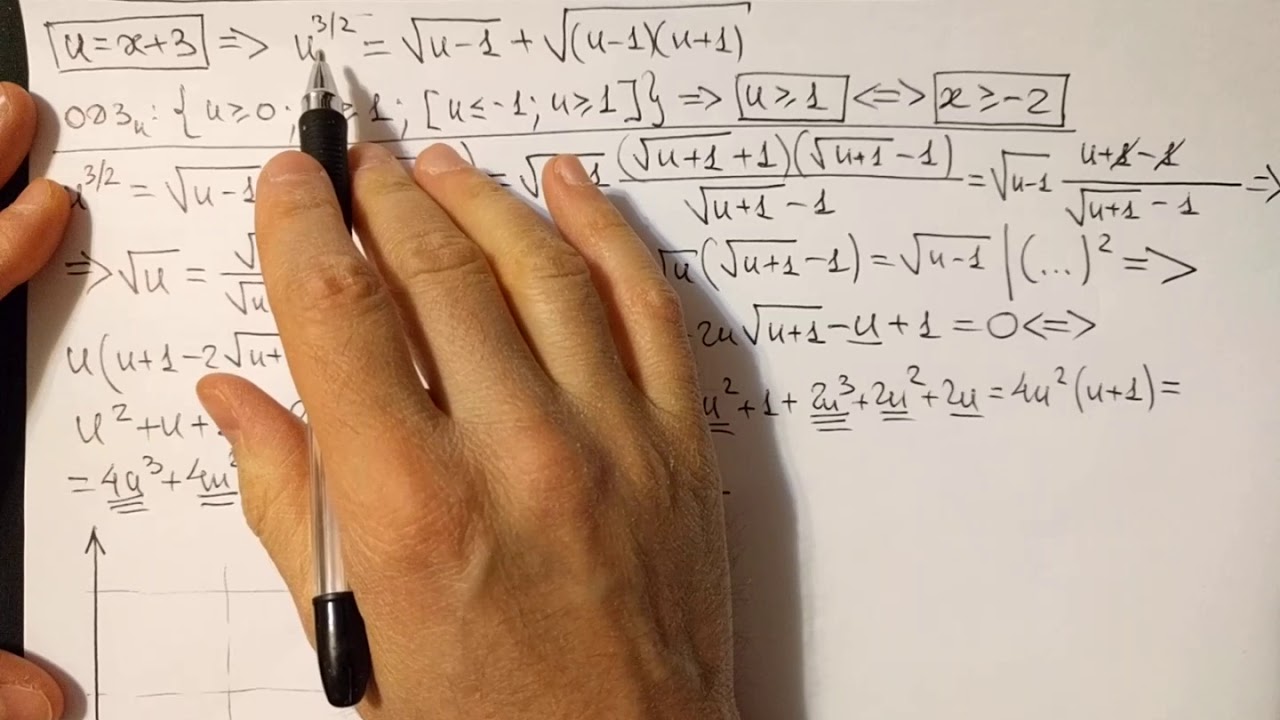 u=x+3 => u^3/2 = √(u-1) + √((u-1)(u+1))
ОДЗu: { u≥0; ≥1; [u≤-1; u≥1]} => u≥1 <=> x≥-2
u^3/2 = √(u-1) ) = √ (√(u+1)+1)(√(u+1)-1) / (√(u+1)-1) = √(u-1) (u+1-1) / (√(u+1)-1) =>
=> √u = √ / √u √u(√(u+1)-1) = √(u-1) | (...)² =>
u(u+1-2√u+ 2u√(u+1)-u+1=0<=>
u²+u+ u²+1+2u³+2u²+2u=4u²(u+1)=
=4u³+4u²